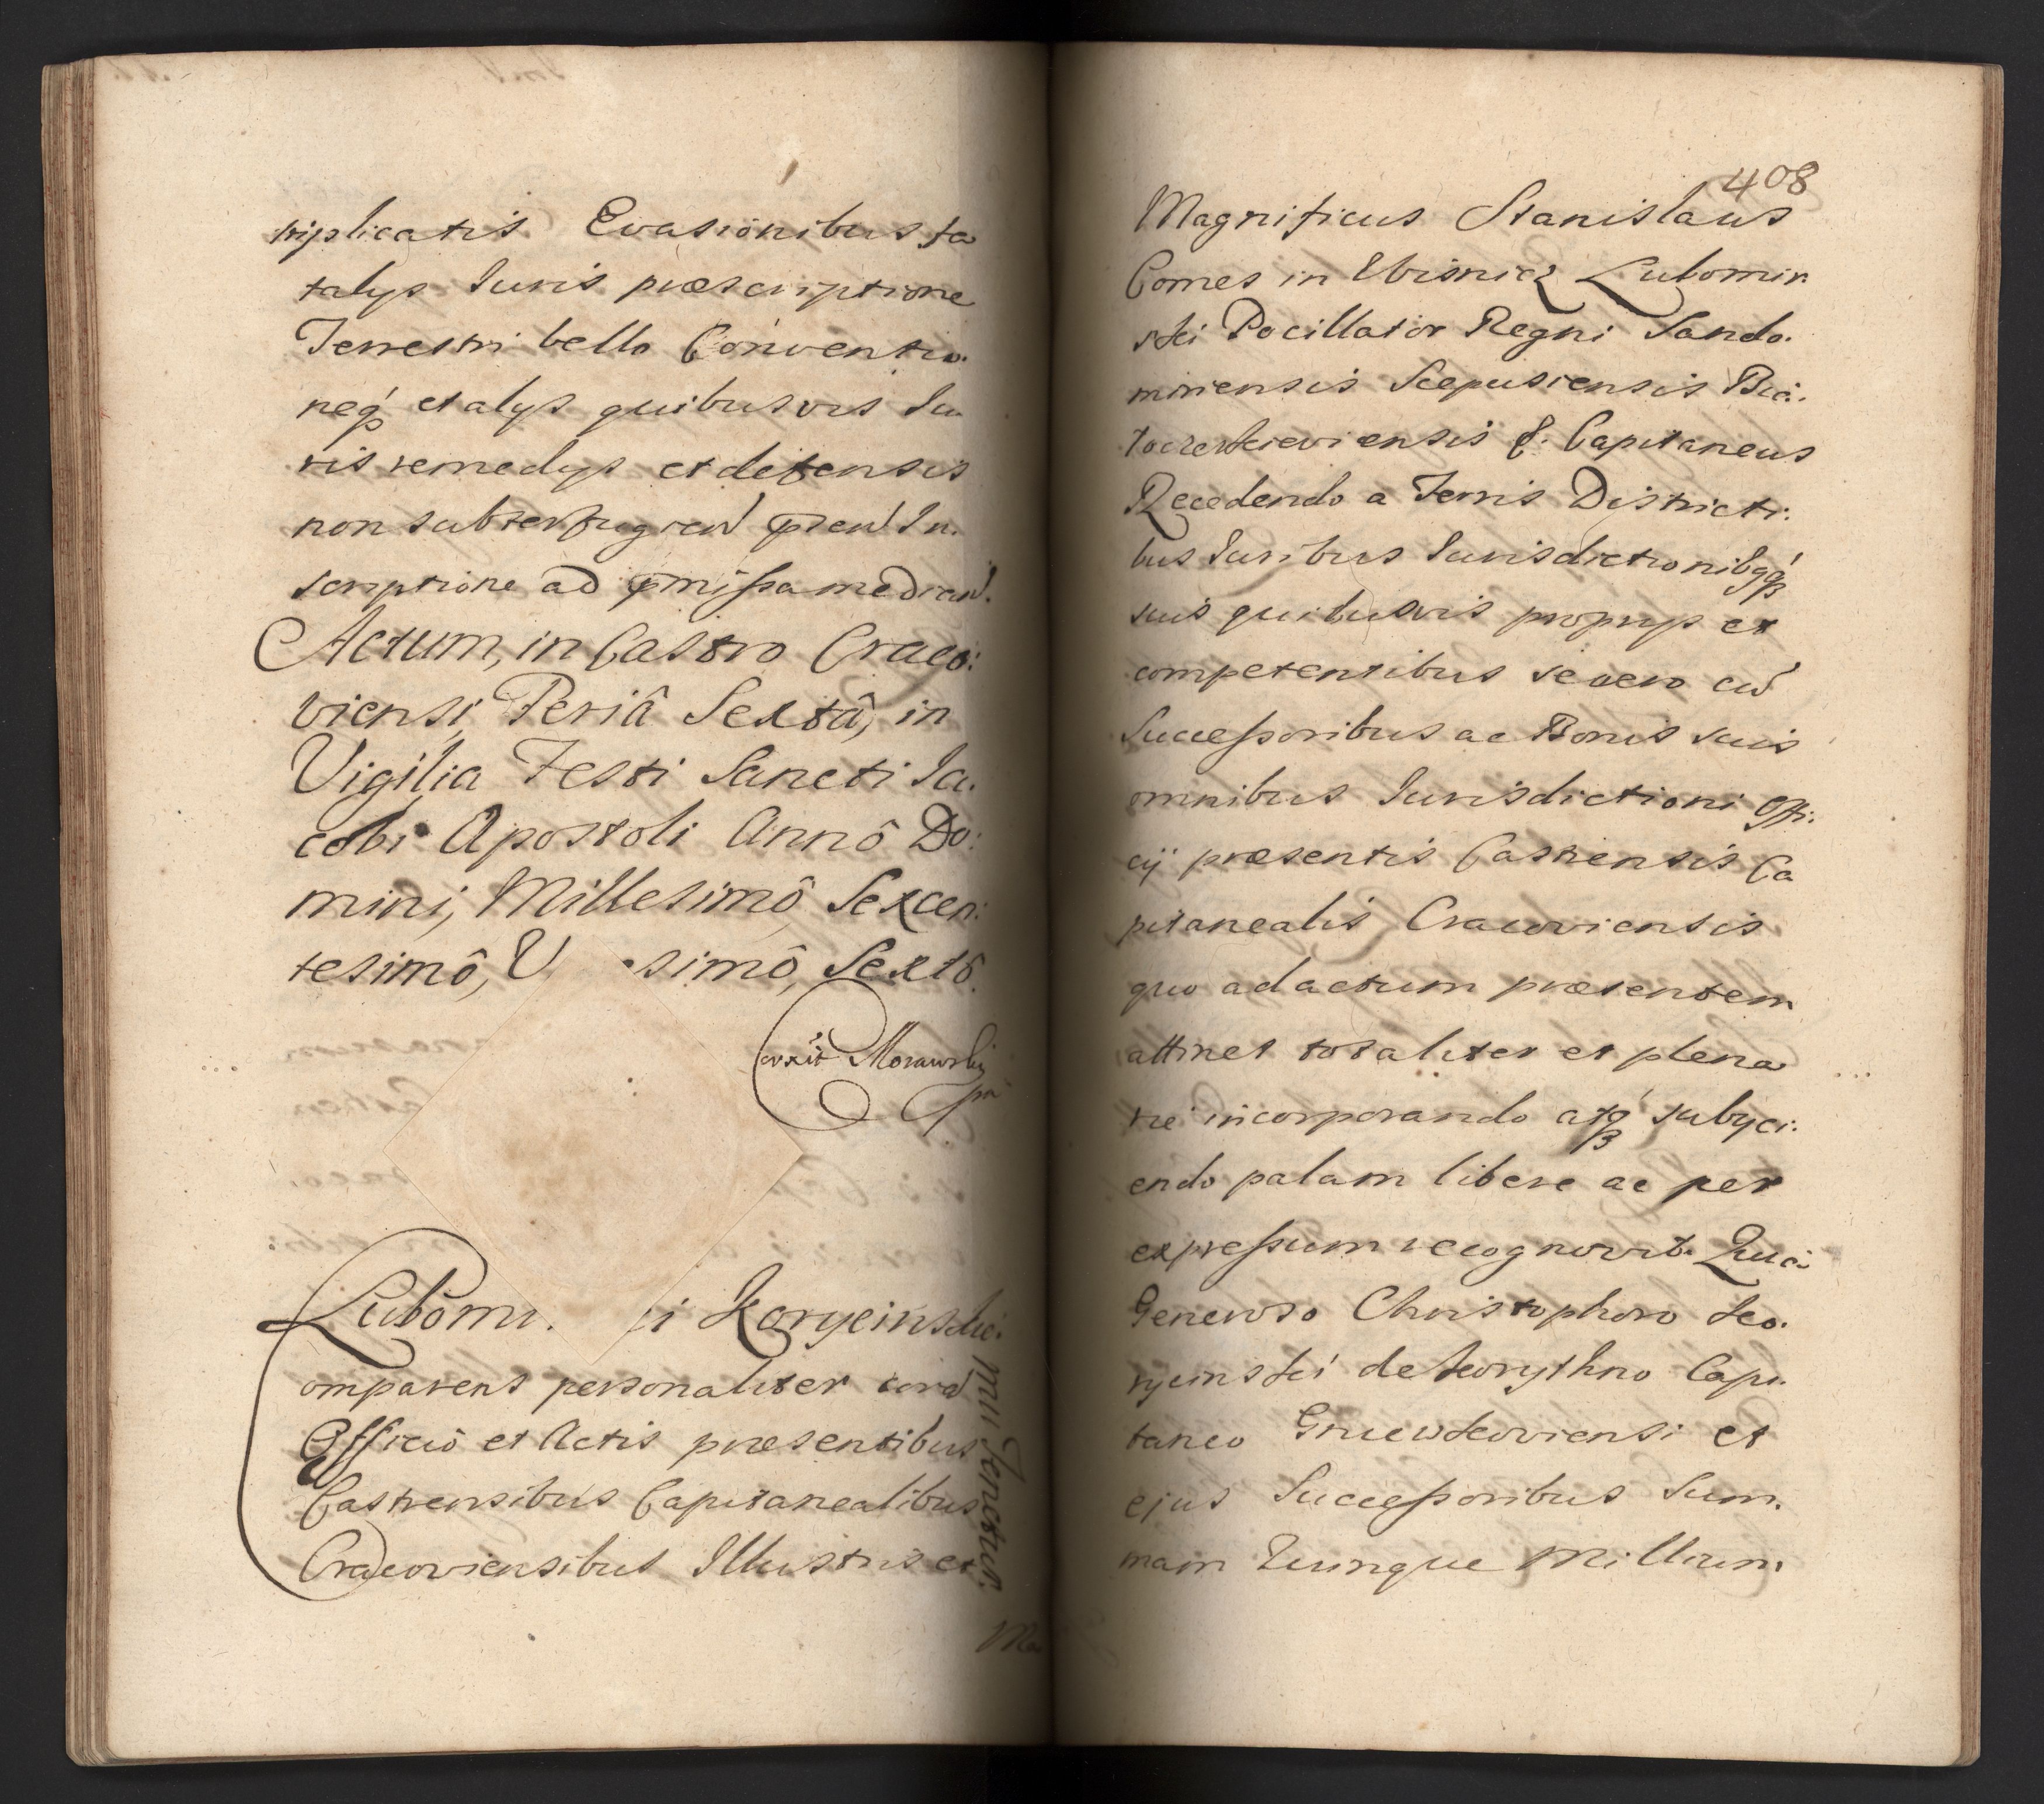 triplicatis Evasionibus fa
talys Iuris præscriptione
Terrestri bello Conventio.
neq́ꝫ et alys quibusvis Iu
ris remedys et defensis
non subterfugien̄ pn̄sen̄ In.
scriptione ad pmissa median̄.
Actum, in Castro Craco:
viensi, Feriâ Sextâ, in
Vigilia Festi Sancti Ia.
cobi Apostoli Annô Do:
mini, Millesimô, Sexcen:
tesimô, V simô, Sextô.
Corxit Morawsky
pm
Lubomi. i Korycinskie
omparens personaliter cora̅
Officiô et Actis præsentibus
Castrensibus Capitanealibus
Cracoviensibus Illustris et
408
Magnificus Stanislaus
Comes in Wisnicz Lubomir.
ski Pocillator Regni Sando.
miriensis Scepusiensis Bia.
Capitaneus
Recedendo a Terris Districti.
bus Iuribus Iurisdictionibq́ꝫ
suis quibusvis proprys et
competentibus se vero cu̅
Successoribus ac Bonis suis
omnibus Iurisdictioni Offi.
cij præsentis Castrensis Ca
pitanealis Cracoviensis
quo ad actum præsentem
attinet totaliter et plena
rie incorporando atq́ꝫ subyci.
endo palam libere ac per
expressum recognovit. Quia
Generoso Christophoro Ko.
rycinski de Korythno Capi.
taneo et
ejus Successoribus Sum.
mam Quinque Millium